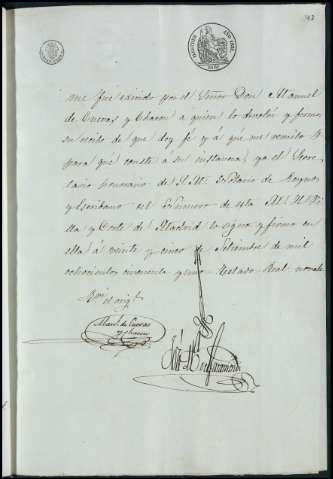 me fue exivido por el Señor Don Manuel
de Cuevas y Chacon a quien lo devolvi y firma
su recibo de que doy fé y á que me remito. Y
para que conste á su instancia, yo el Secre-
tario honorario de S.M. Notario de Reynos
y Escribano del Número de esta M. H. Vi-
lla y Corte de Madrid lo signo y firmo en
ella á veinte y cinco de Setiembre de mil
ochocientos cincuenta y uno
Rvi el orig.l
Man.l de Cuevas
y Chacon